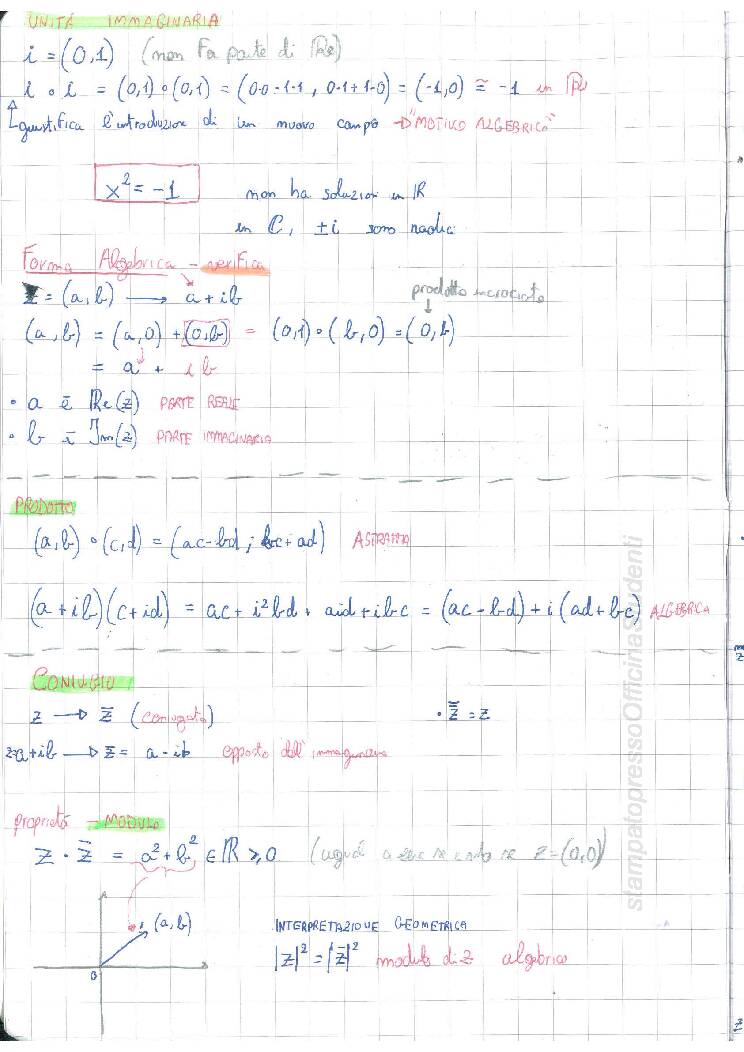 UNITÀ IMMAGINARIA
i = (0,1) (non fa parte di Re)
i ∘ i = (0,1)∘(0,1) = (0·0-1·1, 0·1+1·0) = (-1,0) ≅ -1 in
giustifica l'introduzione di un nuovo campo → "MOTIVO ALGEBRICO"
x² = -1 non ha soluzioni in ℝ
in ℂ, ±i sono radici
Forma Algebrica - verifica
z = (a,b) → a+ib prodotto incrociato
(a,b) = (a,0) + (0,b) = (0,1)∘(b,0) = (0,b)
= a + ib
• a è Re(z) PARTE REALE
• b è Im(z) PARTE IMMAGINARIA
PRODOTTO
(a,b)∘(c,d) = (ac-bd; bc+ad) ASTRATTA
(a+ib)(c+id) = ac + i²bd + aid + ibc = (ac-bd) + i(ad+bc) ALGEBRICA
CONIUGIO
z → z̄ (coniugato) • z̿ = z
z=a+ib → z̄ = a-ib opposto dell'immaginaria
proprietà - MODULO
z · z̄ = a²+b² ∈ ℝ ≥0 (uguale a zero se z = (0,0))
(a,b)
INTERPRETAZIONE GEOMETRICA
|z|² = |z̄|² modulo di z algebrico
0
stampatopressoOfficinaStudenti